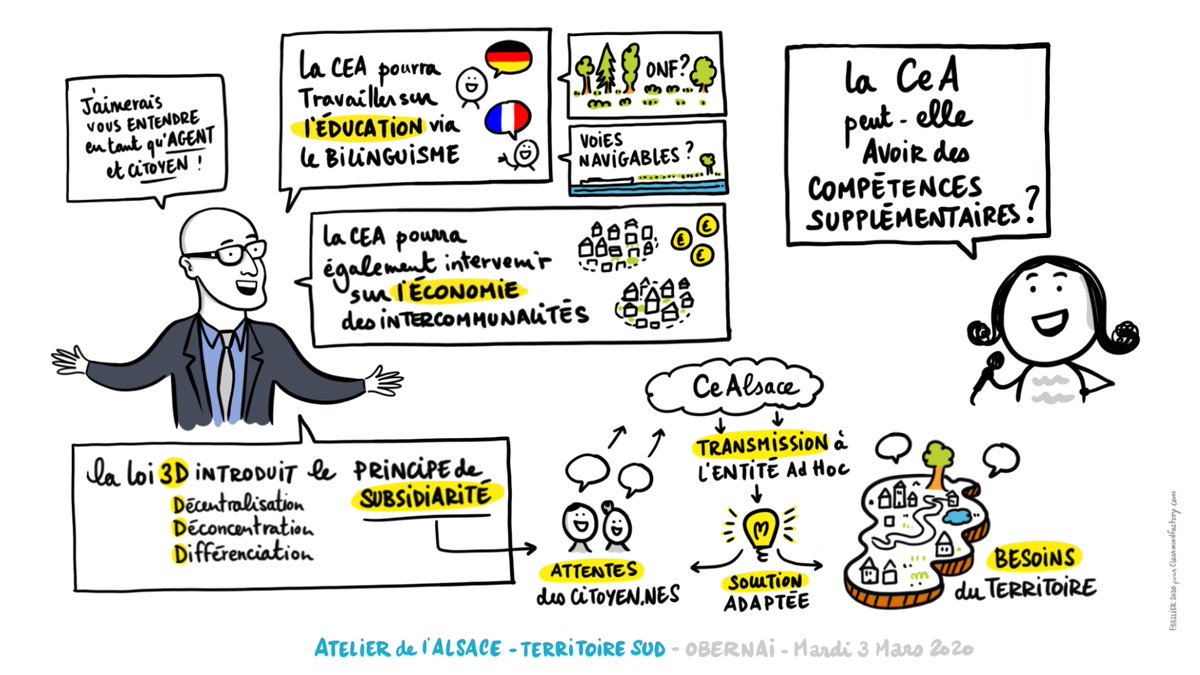 J'aimerais
vous ENTENDRE
en tant qu'AGENT
et CITOYEN !
La CEA pourra
Travailler sur
l'ÉDUCATION via
le BILINGUISME
ONF ?
VOIES
NAVIGABLES ?
la CeA
peut-elle
AVOIR des
COMPÉTENCES
SUPPLÉMENTAIRES ?
La CEA pourra
également intervenir
sur l'ÉCONOMIE
des INTERCOMMUNALITÉS
€
€
€
la loi 3D INTRODUIT le PRINCIPE de
SUBSIDIARITÉ
Décentralisation
Déconcentration
Différenciation
CeAlsace
TRANSMISSION à
l'ENTITÉ Ad Hoc
ATTENTES
des CITOYEN.NES
SOLUTION
ADAPTÉE
BESOINS
du TERRITOIRE
ATELIER de l'ALSACE - TERRITOIRE SUD - OBERNAI - Mardi 3 Mars 2020
F.BELLIER 2020 pour Clearmindfactory.com